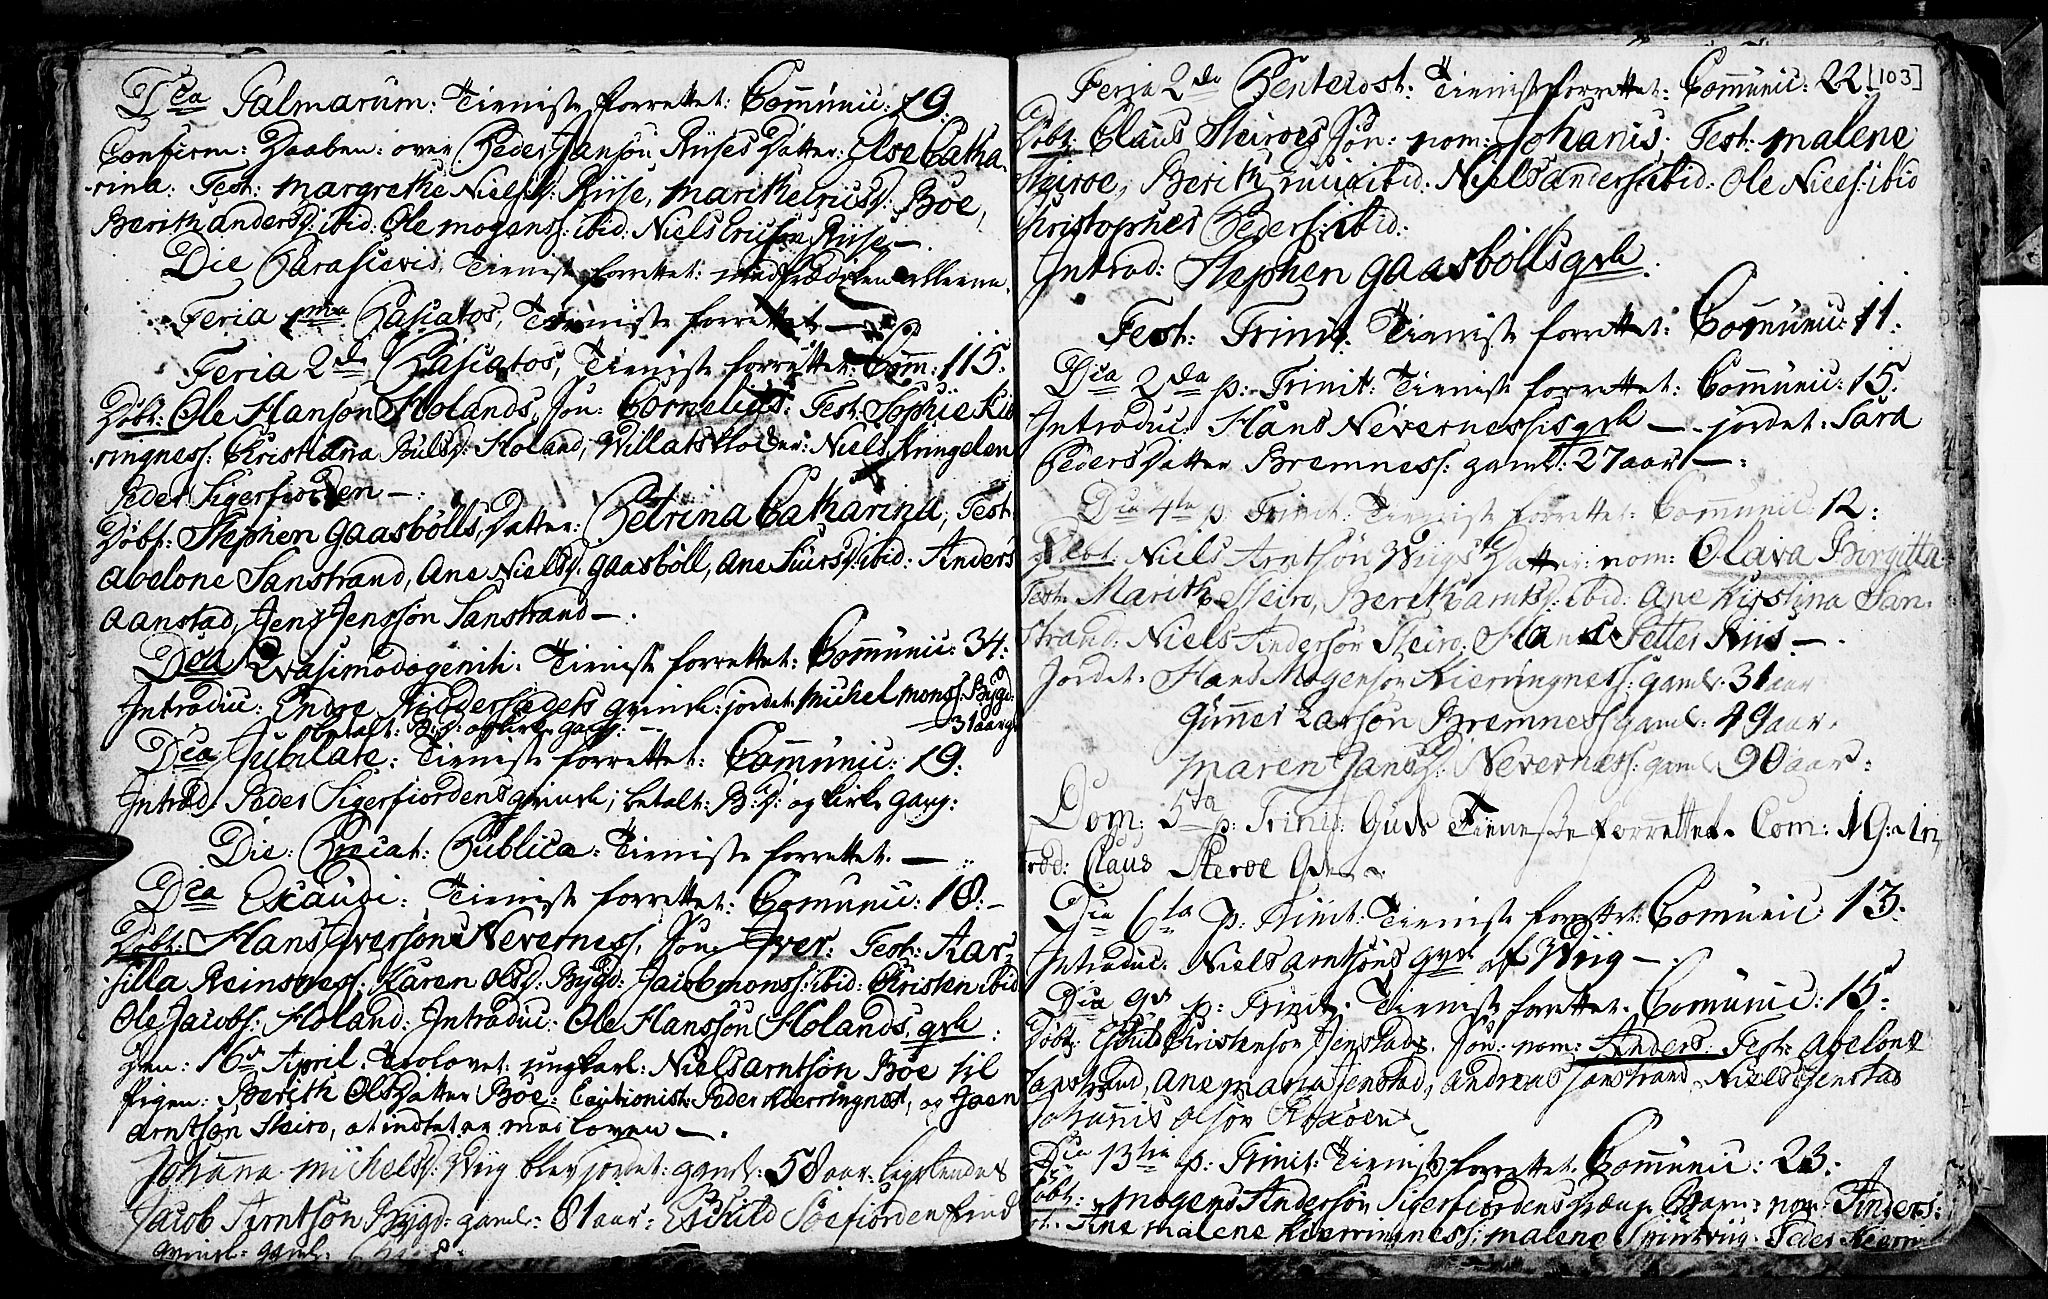 Dca Palmarum: Tieniste forrettet: Com̄unic: 19.
Confirm: Daaben: over Peder Jansøn Riises Datter: Else Catha-
rina: Test: Margrethe Nielsd: Riise, Marithe Boe,
Berith andersd: ibid: Ole Mogens: ibid: Niels Ericsøn Riise —.
Die Parasceves, Tieniste forrettet: med Prædiken
Feria 1ma Paschatos, Tieniste forrettet —
Feria 2da Paschatos, Tieniste forrettet: Com̄: 115.
Døbt: Ole Hansøn Holands, Søn: Cornelius: Test: Sophie Kie
ringness: Kristiana Holand, Willats Niels Kringelen
Peder Sigerfiorden —.
Døbt: Stephen Gaasbølls, Datter: Petrina Catharina, Test:
Abelone Sanstrand, Ane Nielsd. Gaasbøll, Ane Siursd: ibid: Anders
Aanstad, Jens Jenssøn Sanstrand —.
Dca Quasimodogeniti: Tieniste forrettet: Com̄unic: 34:
Introduc: Endre qvinde: jordet: Michel Mons: Bygd:
betalt: B: D: og kirke gang: — 31 aar g
Dca Jubilate: Tieniste forrettet: Com̄unic: 19:
Introd: Peder Sigerfiordens qvinde; betalt: B: D: og kirke gang:
Die: Precat: Publica: Tieniste forrettet. — :
Dca Exaudi: Tieniste forrettet: Comunic: 18: —
Døbt: Hans Iversøns Nevernes, Søn: Iver: Test: Aar-
silla Reinsness: Karen Olsd: Bygd: Jacob Mons: ibid: Kristen ibid
Ole Jacobs: Holand: Introduc: Ole Hanssøn Holands qvde:
Den: 16de April: Trolovet: ungkarl: Niels Arntsøn Boe til
Pigen: Berith Ols Datter Boe: Cautionist: Peder Kierringnest, og Joen
Arntsøn Steiro, at indtet er mod loven —.
Johan̄a Michelsd: Wiig blev jordet: gaml: 58 aar: Ligeledes
Jacob Arntsøn Bygd: gaml: 81 aar: Eschild Søefiorden find
qvinde: gaml:
Feria 2da Pentecost: Tieniste forrettet: Com̄unic: 22. [103]
Døbt: Claus Steiroes Søn: nom: Johan̄is; Test: Malene
Steiroe, Berith ibid: Niels Anders: ibid: Ole Niels: ibid
Christopher Peders: ibid:
Introd: Stephen Gaasbølls qvde.
Fest: Trinit: Tieniste forrettet: Com̄unic: 11:
Dca 2da p: Trinit: Tieniste forrettet: Com̄unic: 15.
Introduc: Hans Nevernessis qvde —. jordet: Sara
Peders Datter Bremness: gaml: 27 aar —:
Dca 4ta p: Trinit: Tieniste forrettet: Com̄unic: 12:
Døbt: Niels Arntsøn Wiigs Datter: nom: Olava Birgitta
Test: Marith Steiro, Berith Arntsd: ibid: Ane Kirstina San-
strand: Niels Andersøn Steiro, Hans Petter Riis —.
Jordet: Hans Mogensøn Kierringness: gaml: 31 aar
Gun̄er Larsøn Bremness gaml: 49 aar.
Maren Jansd: Nevernæss: gaml 90 aar:
Dom: 5ta p: Trinit: Guds Tieneste forrettet. Com: 19: In
trod: Claus Steroe Qvde.
Dca 6ta p: Trinit: Tieniste forrettet: Comunic: 13:
Introduc: Niels Arntsøns qvde af Wiig —.
Dca 9de p: Trinit: Tieniste forrettet: Comunic: 15:
Døbt: Eskild Christensøn Jenstads Søn: nom: Anders: Test: Abelone
Sanstrand, Ane Maria Jenstad, Andreas Sanstrand, Niels Jenstad
Johan̄is Olsøn
Dca 13tia p: Trinit: Tieniste forrettet: Com̄unic: 23:
Døbt: Mogens Andersøn Sigerfiordens Barn: nom: Anders:
Test: Stine Malene Kierringness: Malene Wiig: Peder Kierri